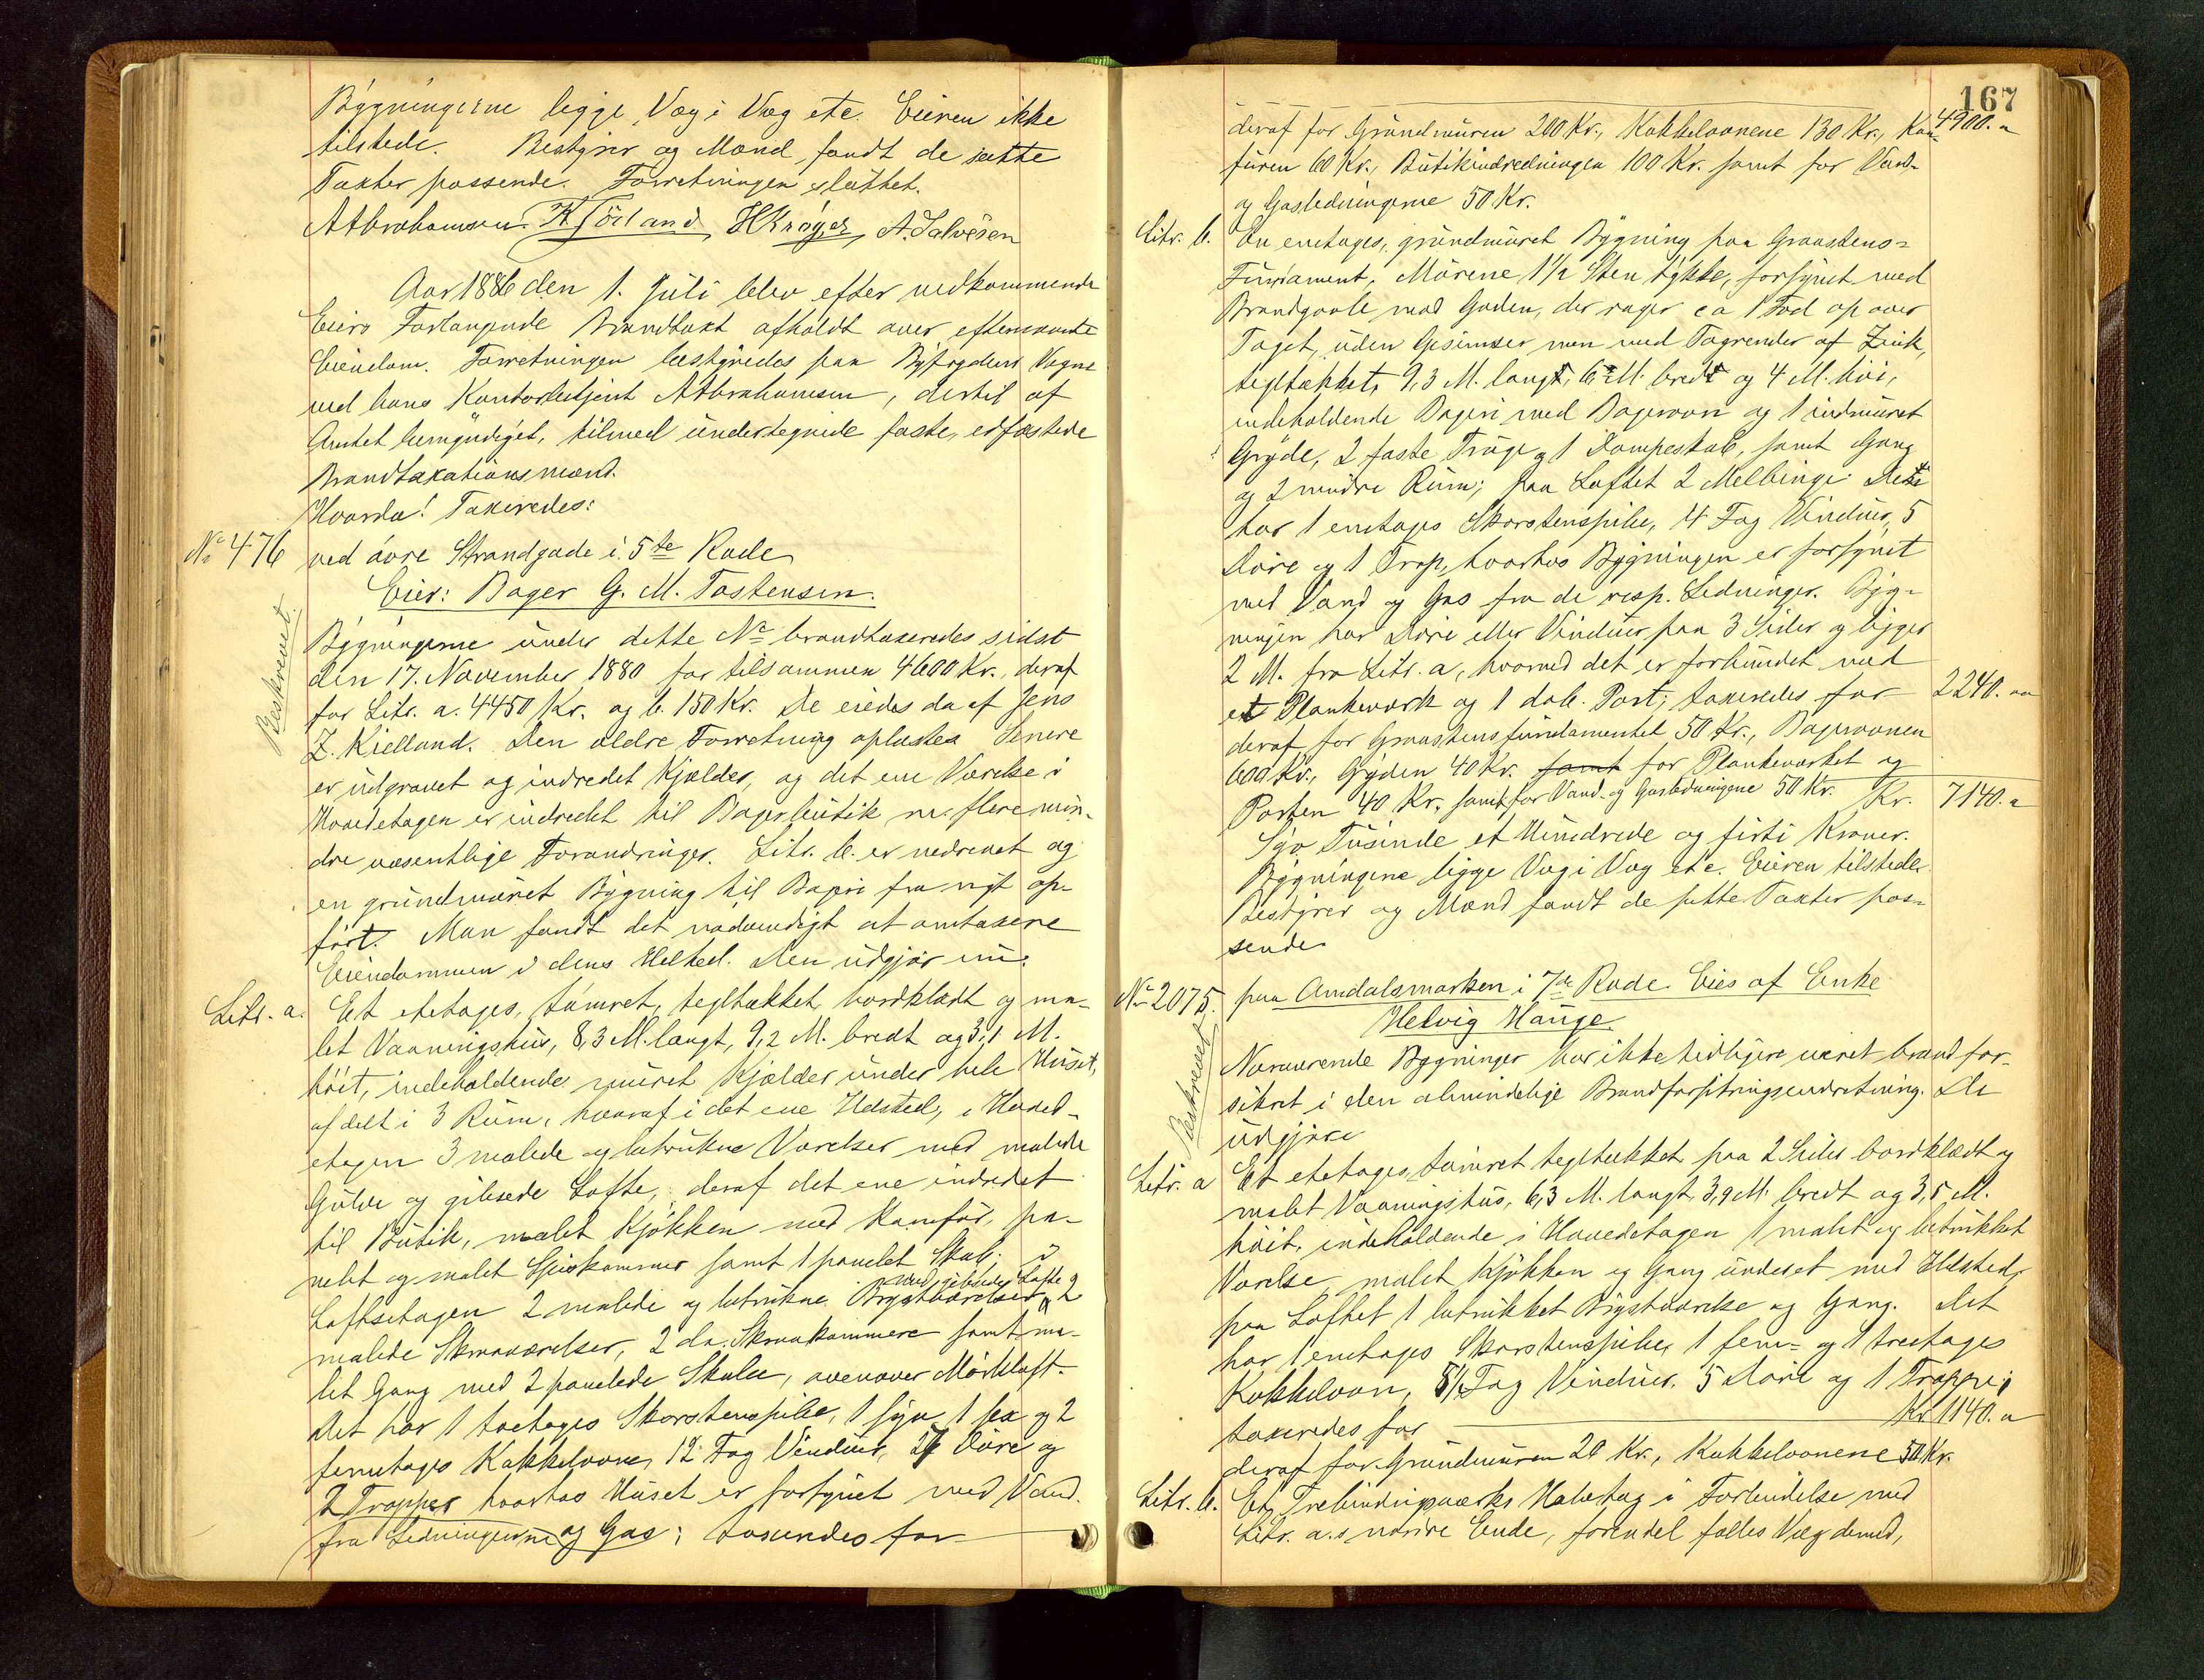 Bygningerne ligge Væg i Væg etc. Eieren ikke
tilstede. Bestyrer og Mænd fandt de satte
Taxter passende. Forretningen sluttet.
AAbrahamsen. K Torland, HKrøger, A. Salvesen
Aar 1886 den 1. Juli blev efter vedkommende
Eiers Forlangende Brandtaxt afholdt over efternævnte
Eiendom. Forretningen bestyredes paa Byfogdens Vegne
ved hans Kontorbetjent AAbrahamsen, dertil af
Amtet bemyndiget, tilmed undertegnede faste, edfæstede
Brandtaxationsmænd.
Hvorda! Taxeredes:
No 476 ved øvre Strandgade i 5te Rode
Eier: Bager G. M. Tostensen.
Beskrevet.
Bygningerne under dette No brandtaxeredes sidst
den 17. November 1880 for tilsammen 4600 Kr., deraf
for Litr. a. 4450 Kr. og b. 150 Kr. De eiedes da af Jens
Z. Kielland. Den ældre Forretning oplæstes. Senere
er udgravet og indredet Kjælder, og det ene Værelse i
Hovedetagen er indredet til Bagerbutik m. flere min-
dre væsentlige Forandringer. Litr. b. er nedrevet og
en grundmuret Bygning til Bageri fra nyt op-
ført. Man fandt det nødvendigt at omtaxere
Eiendommen i dens Helhed. Den udgjør nu:
Litr. a. Et etetages, tømret, tegltækket, bordklædt og ma-
let Vaaningshus, 8,3 M. langt, 9,2 M. bredt og 3,1 M.
høit, indeholdende muret Kjælder under hele Huset,
afdelt i 3 Rum, hvoraf i det ene Ildsted, i Hoved-
etagen 3 malede og betrukne Værelser med malede
Gulve og gibsede Lofte, deraf det ene indredet
til Butik, malet Kjøkken med Komfur, pa-
nelet og malet Spiskammer samt 1 panelet Skab. i
Loftsetagen 2 malede og betrukne Brystværelser
med gibsede Lofte, 2
malede Skraaværelser, 2 do. Skraakammere samt ma-
let Gang med 2 panelede Skabe, ovenover Mørkloft.
Det har 1 toetages Skorstenspibe, 1 syv, 1 sex og 2
femetages Kakkelovne, 12 Fag Vinduer, 27 Døre og
2 Trapper hvorhos Huset er forsynet med Vand
fra Ledningerne og Gas; taxeredes for
167
4900. "
deraf for Grundmuren 200 Kr., Kakkelovnene 130 Kr., Kom-
furen 60 Kr., Butikindredningen 100 Kr. samt for Vand-
og Gasledningerne 50 Kr.
Litr. b. En enetages, grundmuret Bygning paa Graastens-
Fundament, Murene 1½ Sten tykke, forsynet med
Brandgavle mod Gaden, der rager ca 1 Fod op over
Taget, uden Gesimser men med Tagrender af Zink,
tegltækket, 9,3 M. langt, M. bredt og 4 M. høi,
indeholdende Bageri med Bagerovn og 1 indmuret
Gryde, 2 faste Truge og 1 Dampeskab, samt Gang
og 2 mindre Rum; paa Loftet 2 Melbinge. Dette
har 1 enetages Skorstenspibe, 4 Fag Vinduer, 5
Døre og 1 Trap, hvorhos Bygningen er forsynet
med Vand og Gas fra de resp. Ledninger. Byg-
ningen har Døre eller Vinduer paa 3 Sider og ligger
2 M. fra Litr. a, hvormed det er forbundet med
et Plankeværk og 1 dob. Port; taxeredes for 2240. "
deraf for Graastensfundamentet 50 Kr., Bagerovnen
600 Kr., Gryden 40 Kr. samt for Plankeværket og
Porten 40 Kr. samt for Vand- og Gasledningerne 50 Kr. Kr. 7140. "
Syv Tusinde et Hundrede og firti Kroner.
Bygningerne ligge Væg i Væg etc. Eieren tilstede
Bestyrer og Mænd fandt de satte Taxter pas-
sende.
No 2075. paa Arendalsmarken i 7de Rode. Eies af Enke
Helvig Hauge.
Beskrevet
Nærværende Bygninger har ikke tidligere været brandfor-
sikret i den almindelige Brandforsikringsindretning. De
udgjøre
Litr. a Et etetages, tømret tegltækket, paa 2 Sider bordklædt og
malet Vaaningshus, 6,3 M. langt, 3,9 M. bredt og 3,5 M.
høit, indeholdende i Hovedetagen 1 malet og betrukket
Værelse, malet Kjøkken og Gang undeset med Ildsted,
paa Loftet 1 betrukket Brystværelse og Gang. Det
har 1 enetages Skorstenspibe, 1 fem- og 1 treetages
Kakkelovn, Fag Vinduer, 5 Døre og 1 Trappe;
taxeredes for Kr. 1140. "
deraf for Grundmuren 20 Kr., Kakkelovnene 50 Kr.
Litr. b. Et Trebindingsværks Halvtag i Forbindelse med
Litr. a.s nordre Ende, forendel fælles Væg dermed,